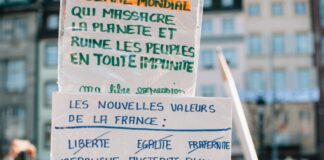 MONDIAL
QUI MASSACRE
LA PLANETE ET
RUINE LES PEUPLES
EN TOUTE IMPUNITE
ma libre expression
LES NOUVELLES VALEURS
DE LA FRANCE :
LIBERTE EGALITE FRATERNITE
AUSTERITE